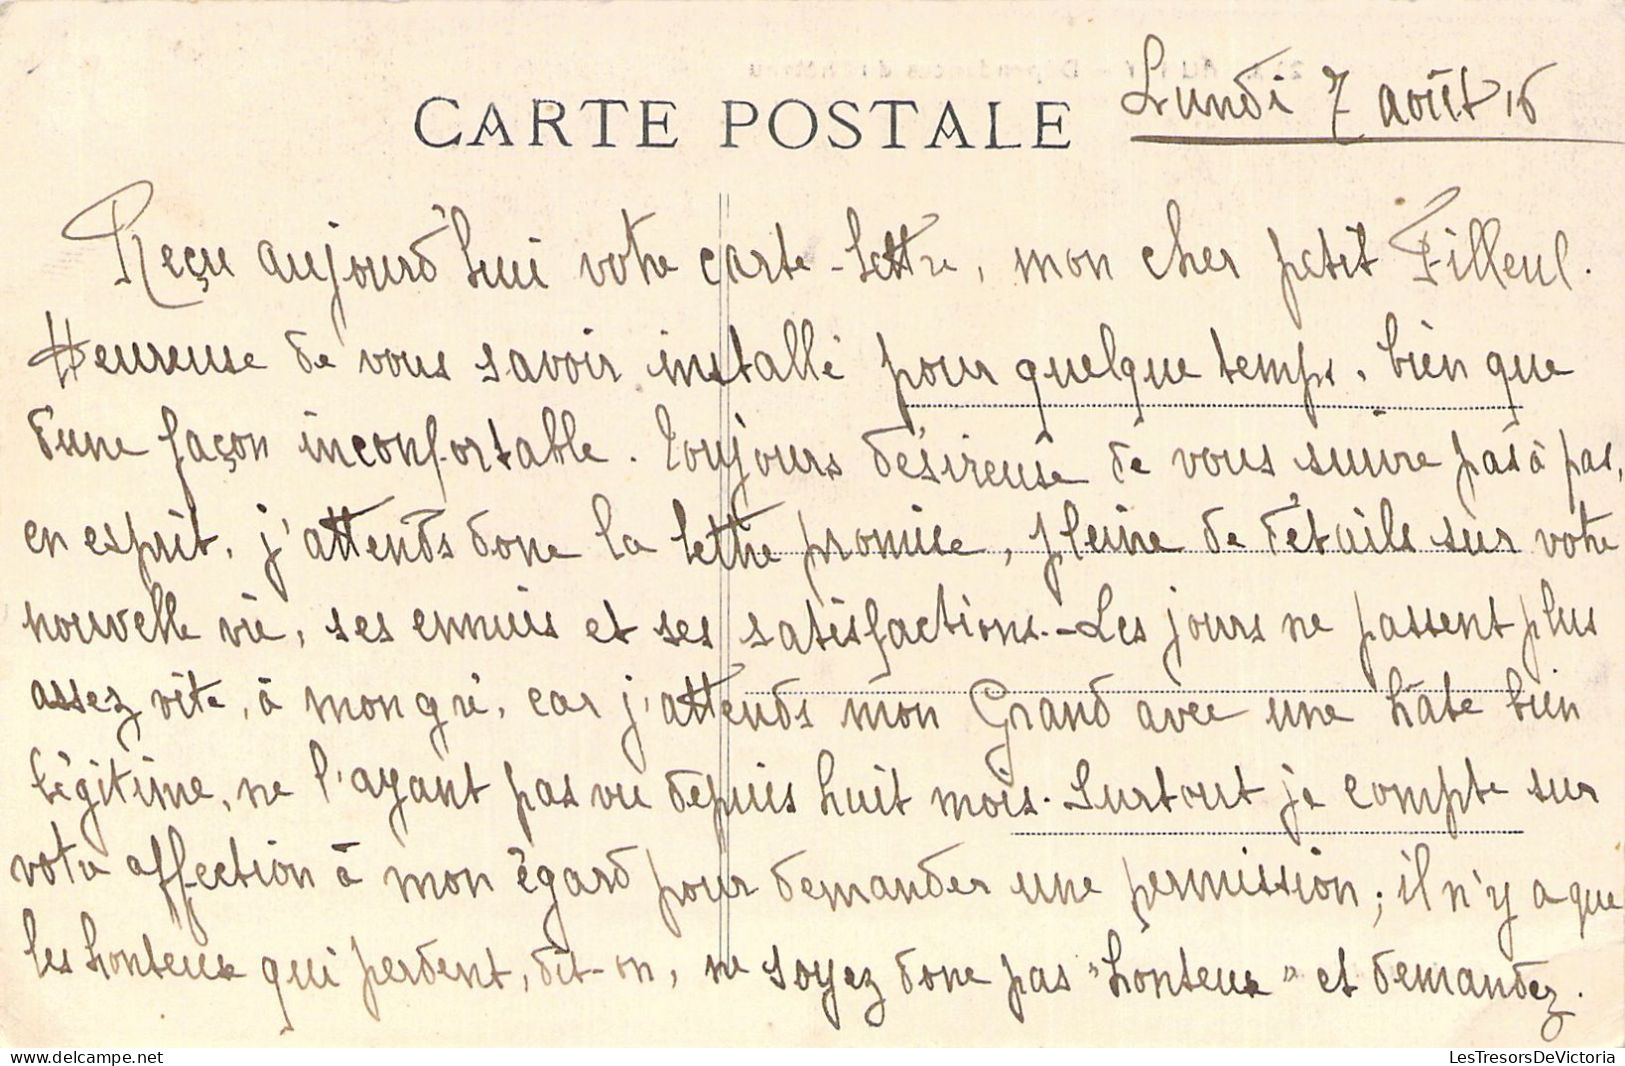 Lundi 7 août 16
CARTE POSTALE
Reçu aujourd'hui votre carte-lettre, mon cher petit Filleul.
Heureuse de vous savoir installé pour quelque temps, bien que
d'une façon inconfortable. Toujours désireuse de vous suivre pas à pas,
en esprit, j'attends donc la lettre promise, pleine de détails sur votre
nouvelle vie, ses ennuis et ses satisfactions.- Les jours ne passent plus
assez vite, à mon gré, car j'attends mon Grand avec une hâte bien
légitime, ne l'ayant pas vu depuis huit mois. Surtout je compte sur
votre affection à mon égard pour demander une permission; il n'y a que
les honteux qui perdent, dit-on, ne soyez donc pas "honteux" et demandez.
delcampe.net
LesTresorsDeVictoria